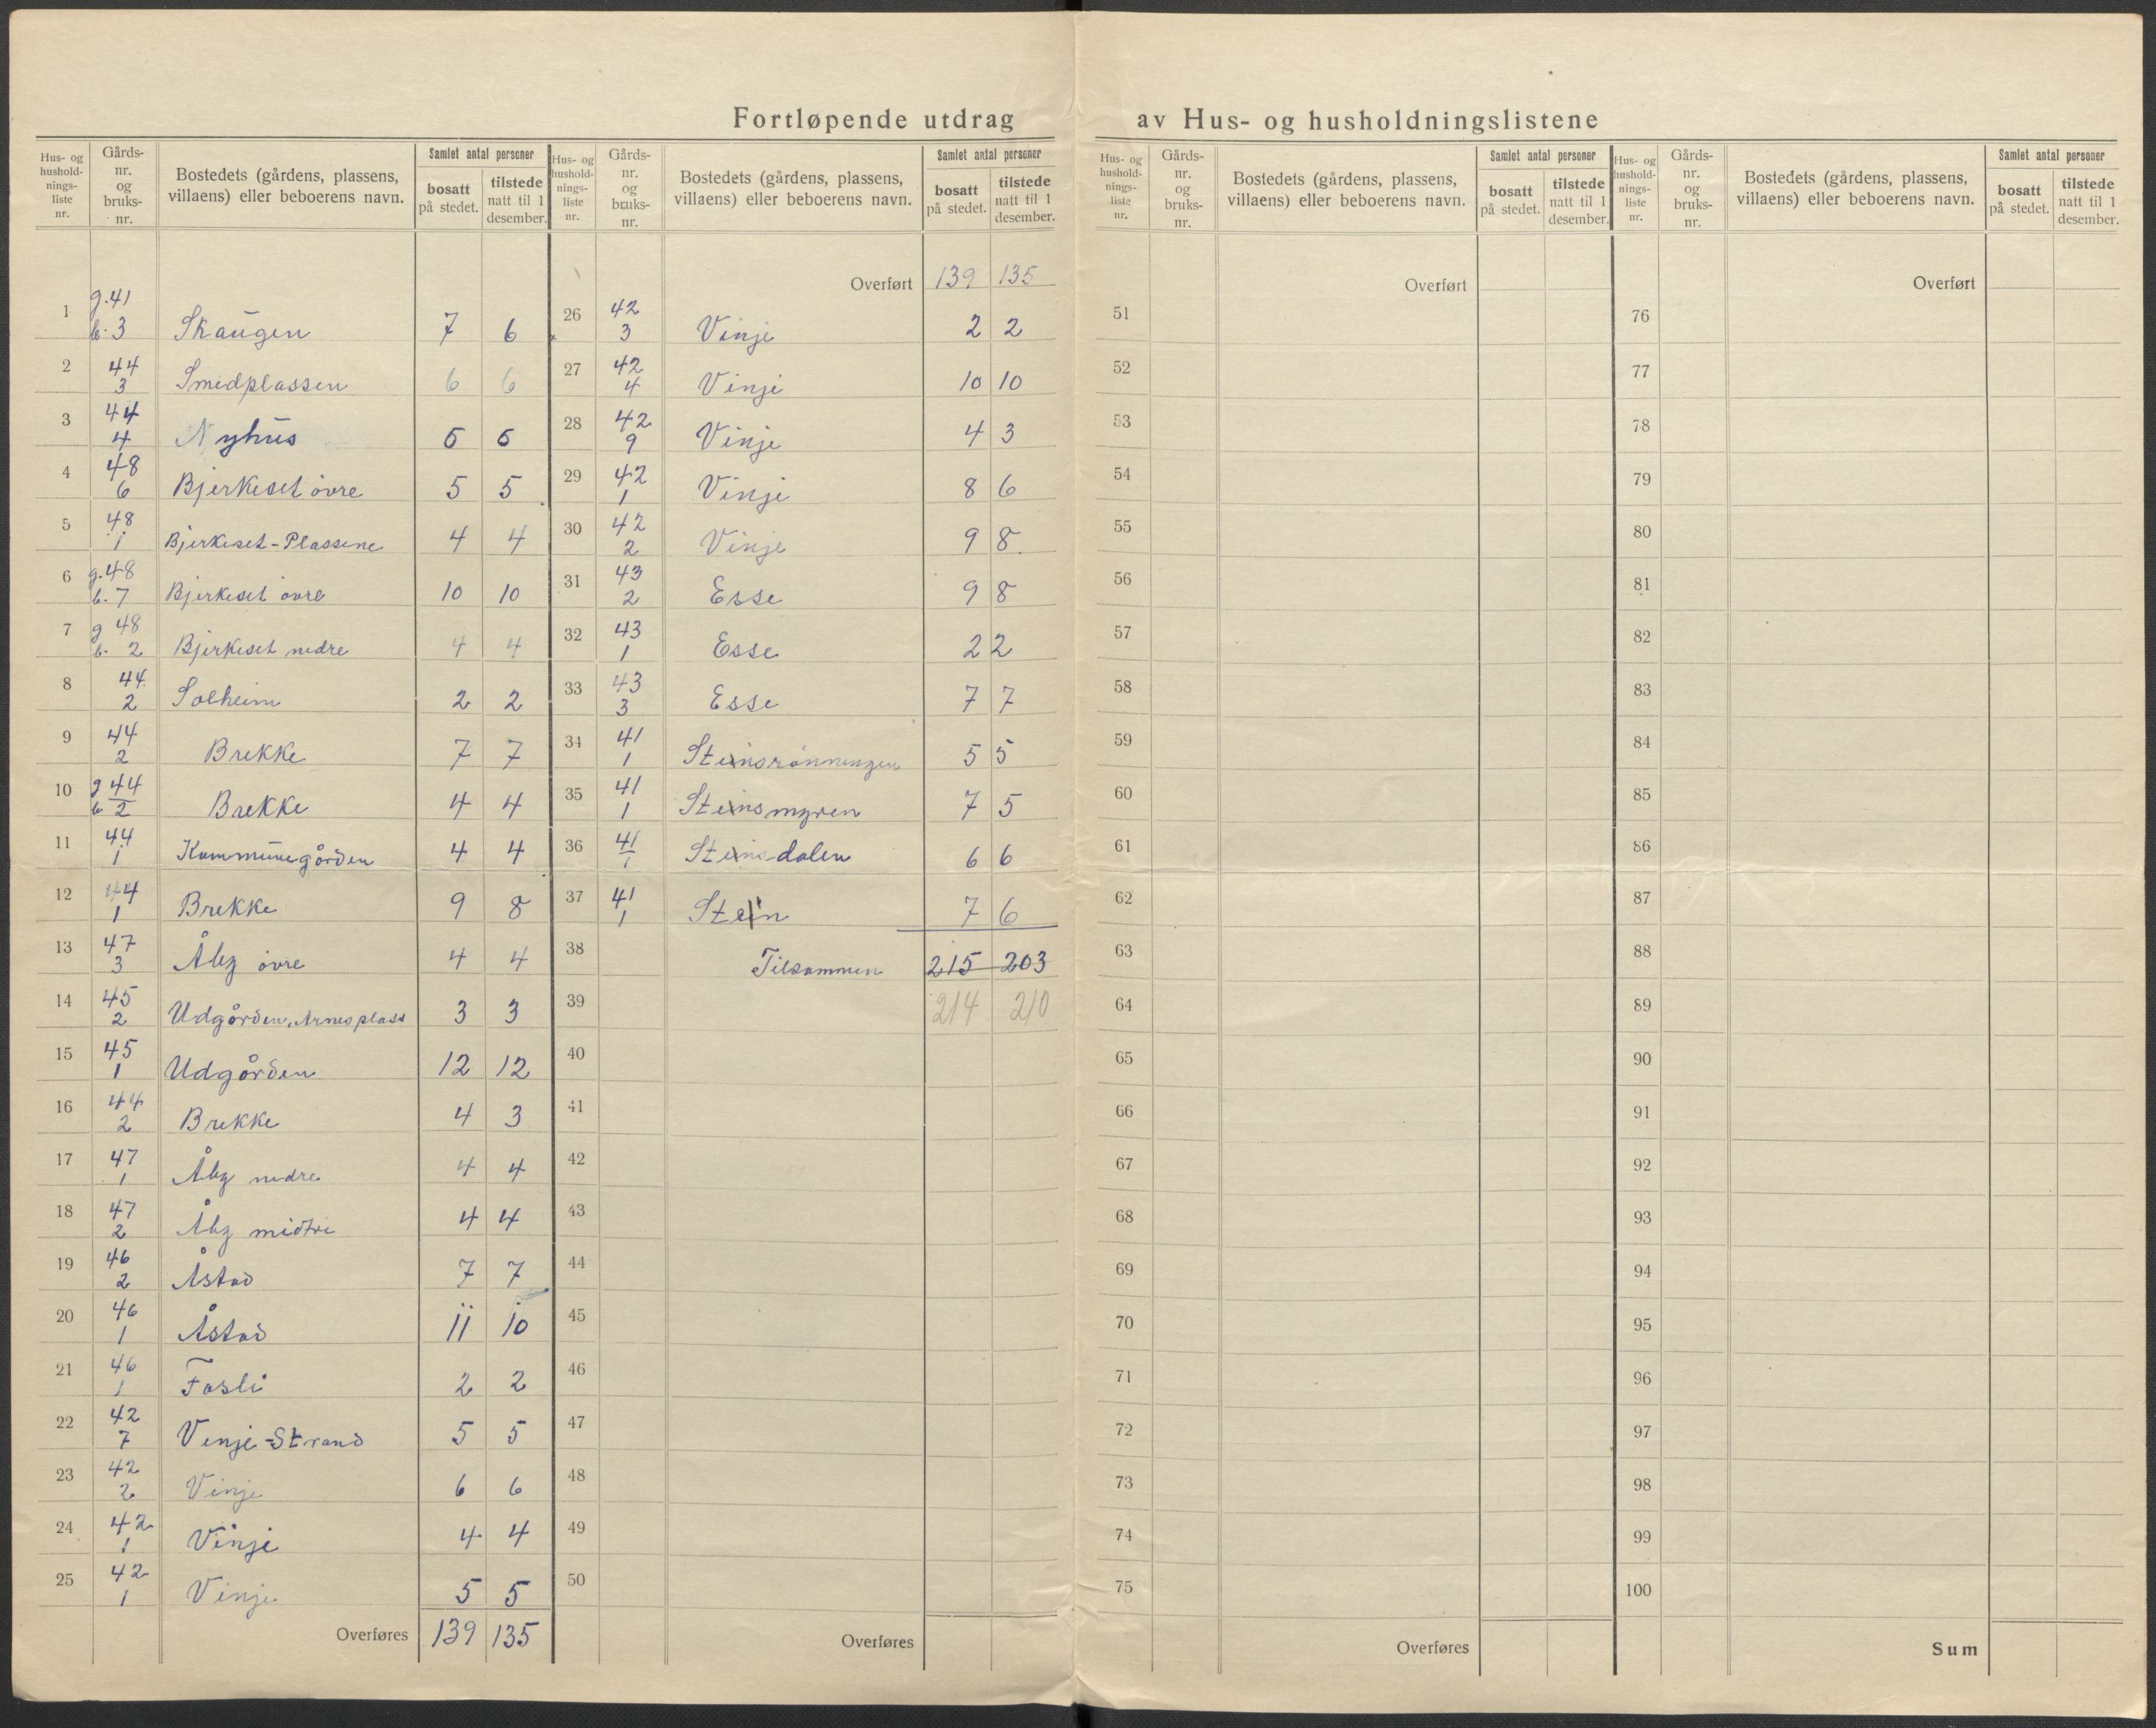 Fortløpende utdrag av Hus- og husholdningslistene
Hus- og husholdnings- liste nr. | Gårds- nr. og bruks- nr. | Bostedets (gårdens, plassens, villaens) eller beboerens navn. | Samlet antal personer | bosatt på stedet. | tilstede natt til 1 desember.
1 | g. 41 b. 3 | Skaugen | 7 | 6
2 | 44 3 | Smedplassen | 6 | 6
3 | 44 4 | Nyhus | 6 | 6
4 | 48 6 | Bjerkeset övre | 5 | 5
5 | 48 1 | Bjerkeset-Plassene | 4 | 4
6 | g. 48 b. 7 | Bjerkeset övre | 10 | 10
7 | g 48 b. 2 | Bjerkeset nedre | 4 | 4
8 | 44 2 | Solheim | 2 | 2
9 | 44 2 | Brekke | 7 | 7
10 | g 44 b 2 | Brekke | 4 | 4
11 | 44 1 | Kommunegården | 4 | 4
12 | 44 1 | Brekke | 9 | 8
13 | 47 3 | Åby övre | 4 | 4
14 | 45 2 | Udgården, Arnesplass | 3 | 3
15 | 45 1 | Udgården | 12 | 12
16 | 44 2 | Brekke | 4 | 3
17 | 47 1 | Åby nedre | 4 | 4
18 | 47 2 | Åby midtre | 4 | 4
19 | 46 2 | Åstad | 7 | 7
20 | 46 1 | Åstad | 11 | 10
21 | 46 1 | Fosli | 2 | 2
22 | 42 7 | Vinje-Strand | 5 | 5
23 | 42 2 | Vinje | 6 | 6
24 | 42 1 | Vinje | 4 | 4
25 | 42 1 | Vinje | 5 | 5
Overføres | 139 | 135
Hus- og husholdnings- liste nr. | Gårds- nr. og bruks- nr. | Bostedets (gårdens, plassens, villaens) eller beboerens navn. | Samlet antal personer | bosatt på stedet. | tilstede natt til 1 desember.
Overført | 139 | 135
26 | 42 3 | Vinje | 2 | 2
27 | 42 4 | Vinje | 10 | 10
28 | 42 9 | Vinje | 4 | 3
29 | 42 1 | Vinje | 8 | 6
30 | 42 2 | Vinje | 9 | 8
31 | 43 2 | Esse | 9 | 8
32 | 43 1 | Esse | 2 | 2
33 | 43 3 | Esse | 7 | 7
34 | 41 1 | Steinsrönningen | 5 | 5
35 | 41 1 | Steinsmyren | 7 | 5
36 | 41 1 | Steinsdalen | 6 | 6
37 | 41 1 | Stein | 7 | 6
38 | Tilsammen | 215 | 203
39 | 214 | 210
40
41
42
43
44
45
46
47
48
49
50
Overføres
Hus- og husholdnings- liste nr. | Gårds- nr. og bruks- nr. | Bostedets (gårdens, plassens, villaens) eller beboerens navn. | Samlet antal personer | bosatt på stedet. | tilstede natt til 1 desember.
Overført
51
52
53
54
55
56
57
58
59
60
61
62
63
64
65
66
67
68
69
70
71
72
73
74
75
Overføres
Hus- og husholdnings- liste nr. | Gårds- nr. og bruks- nr. | Bostedets (gårdens, plassens, villaens) eller beboerens navn. | Samlet antal personer | bosatt på stedet. | tilstede natt til 1 desember.
Overført
76
77
78
79
80
81
82
83
84
85
86
87
88
89
90
91
92
93
94
95
96
97
98
99
100
Sum